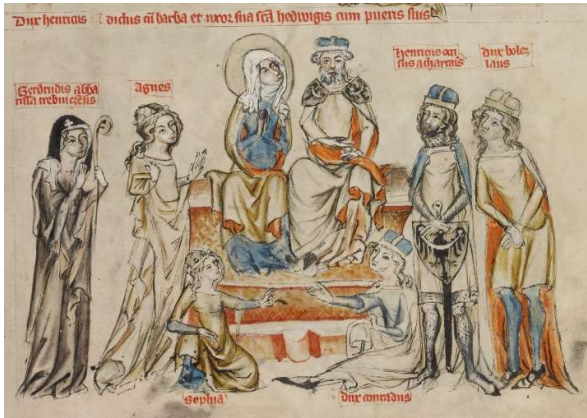 Dux henricus dictus cū barba et uxor sua scā hedwigis cum pueris suis
Gerdrudis abba
tissa trebnicēsis
Agnes
henricus occi
sus a thartaris
dux boles
laus
Sophia
dux conradus